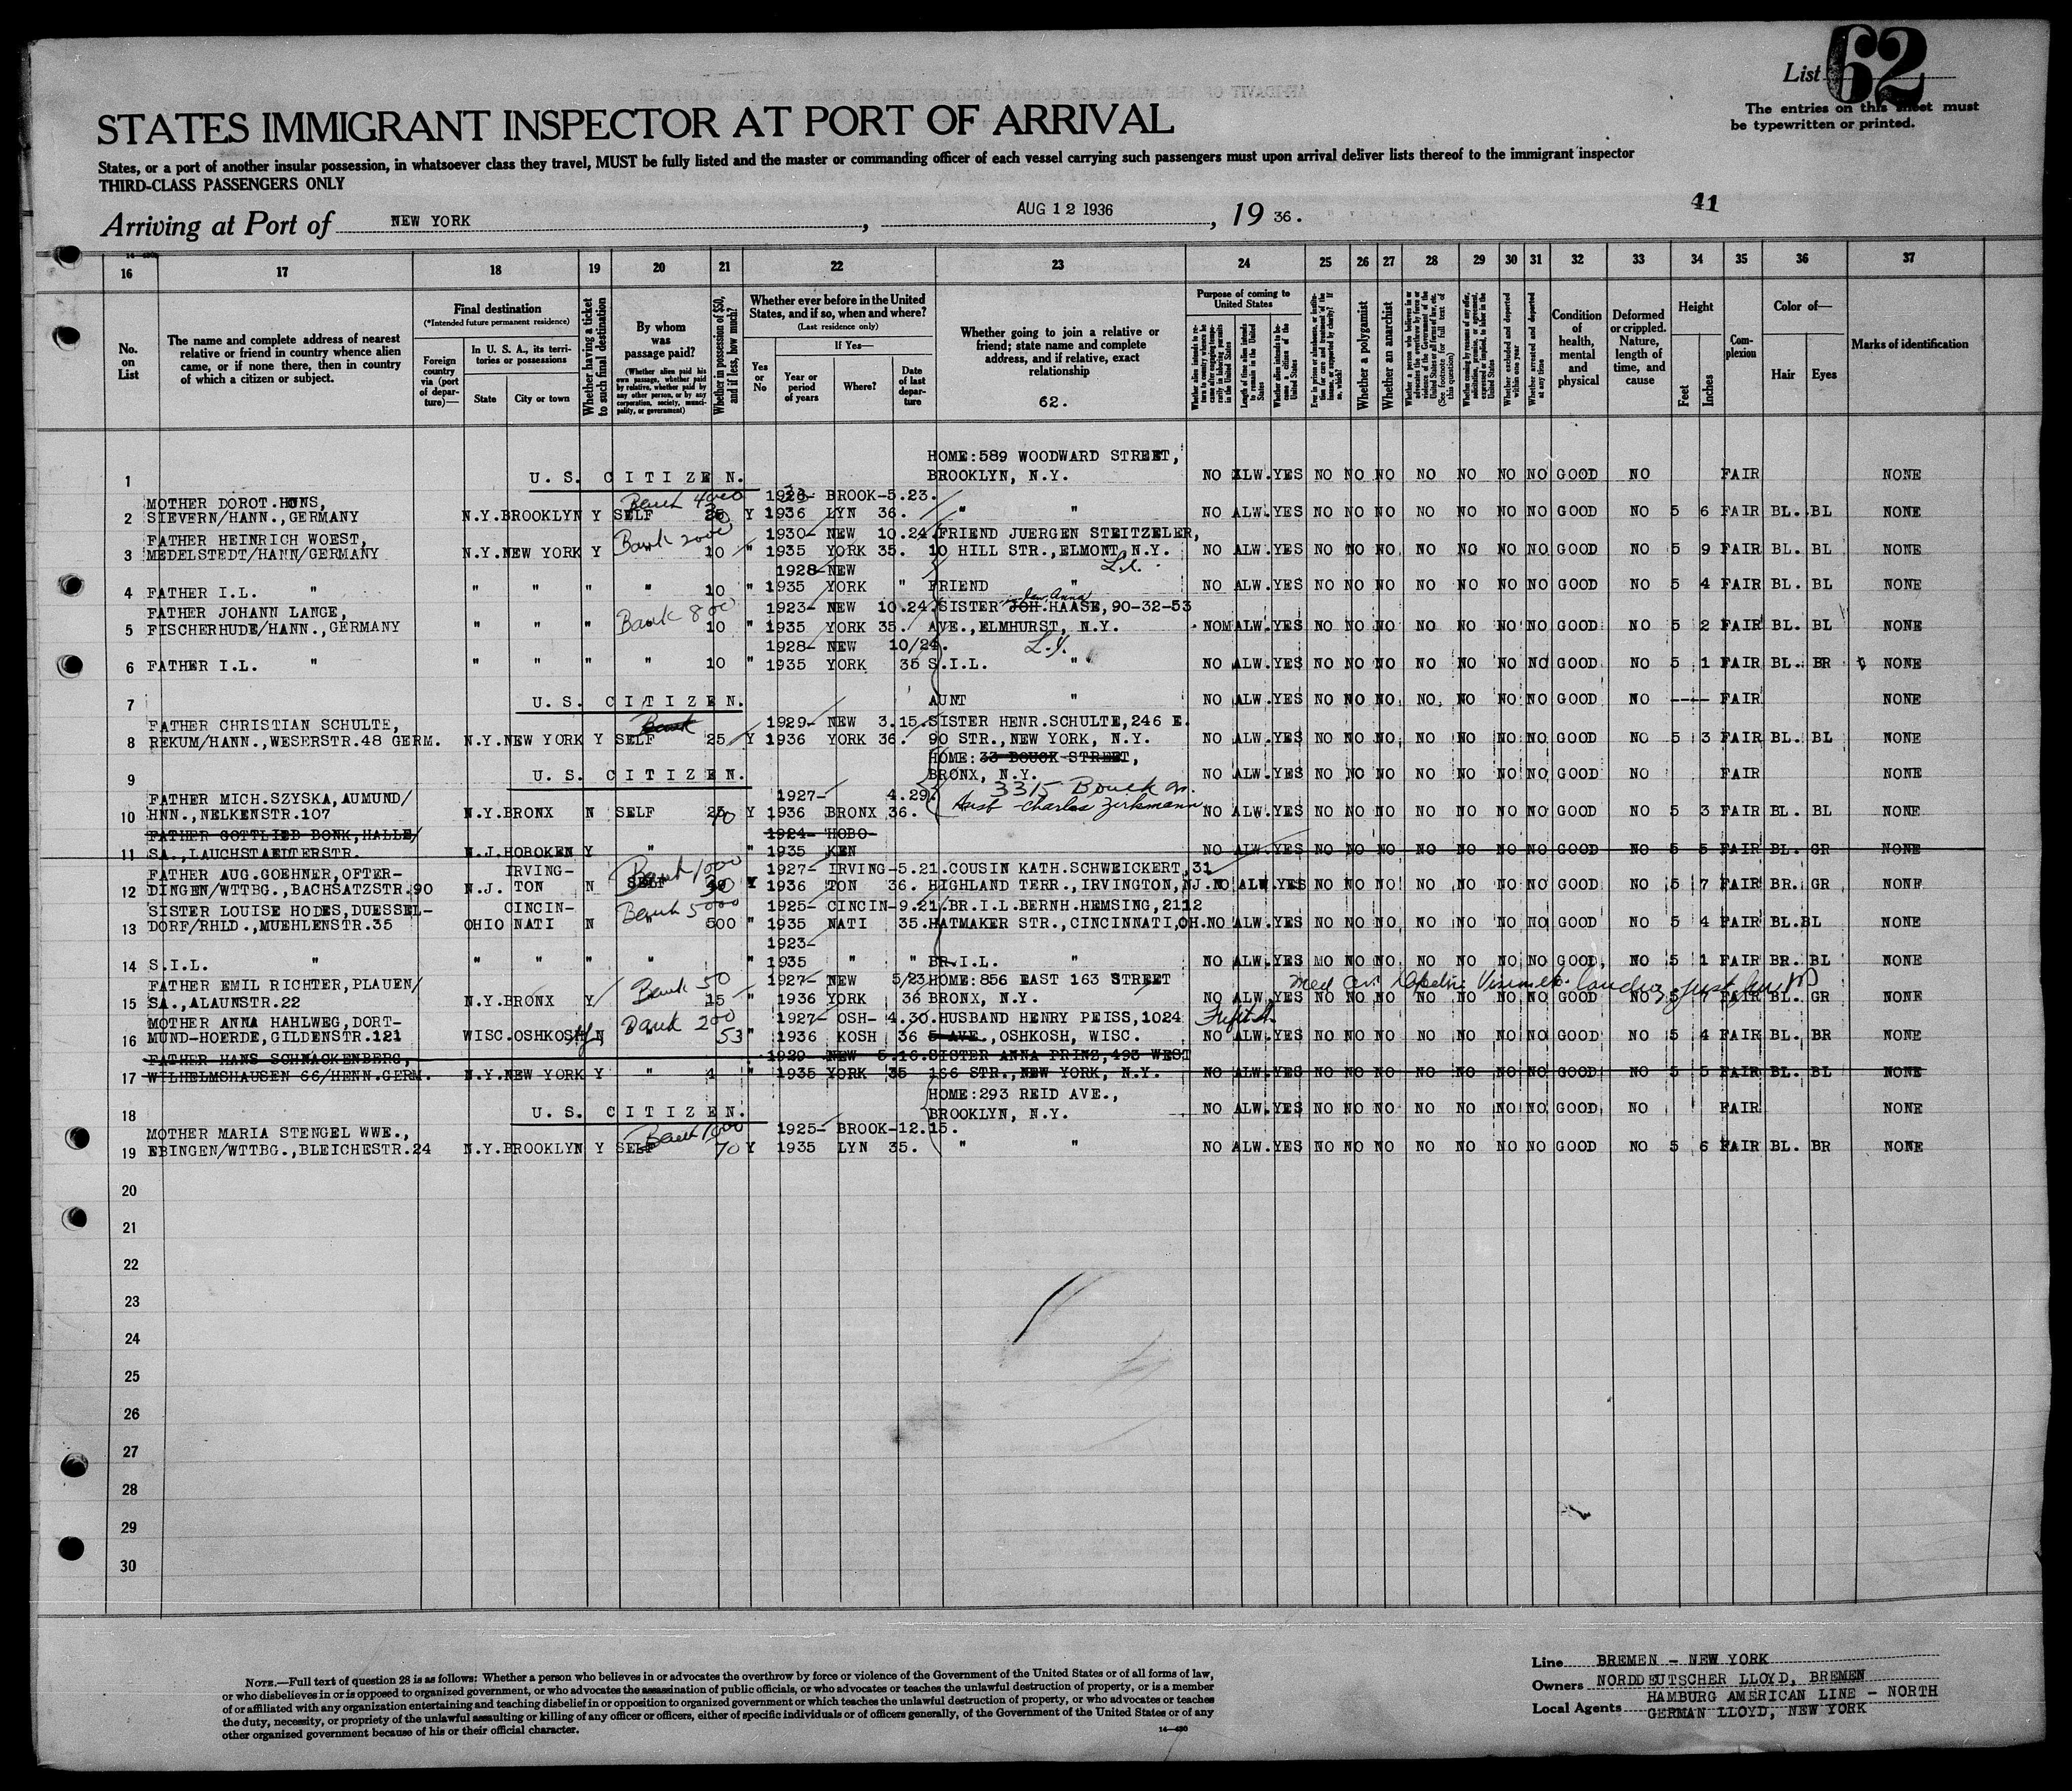 List 62
The entries on this sheet must
be typewritten or printed.
STATES IMMIGRANT INSPECTOR AT PORT OF ARRIVAL
States, or a port of another insular possession, in whatsoever class they travel, MUST be fully listed and the master or commanding officer of each vessel carrying such passengers must upon arrival deliver lists thereof to the immigrant inspector
THIRD-CLASS PASSENGERS ONLY
41
Arriving at Port of NEW YORK , AUG 12 1936 , 19 36.
16 17 18 19 20 21 22 23 24 25 26 27 28 29 30 31 32 33 34 35 36 37
No. on List
The name and complete address of nearest relative or friend in country whence alien came, or if none there, then in country of which a citizen or subject.
Final destination
(*Intended future permanent residence)
Foreign country via (port of departure)—
In U. S. A., its territories or possessions
State City or town
Whether having a ticket to such final destination
By whom was passage paid?
(Whether alien paid his own passage, whether paid by relative, whether paid by any other person, or by any corporation, society, municipality, or government)
Whether in possession of $50, and if less, how much?
Whether ever before in the United States, and if so, when and where?
(Last residence only)
Yes or No
If Yes—
Year or period of years
Where?
Date of last departure
Whether going to join a relative or friend; state name and complete address, and if relative, exact relationship
62.
Purpose of coming to United States
Length of time alien intends to remain in the United States
Whether alien intends to become a citizen of the United States
Whether a polygamist
Whether an anarchist
Whether excluded and deported within one year
Whether arrested and deported at any time
Condition of health, mental and physical
Deformed or crippled. Nature, length of time, and cause
Height
Feet Inches
Complexion
Color of—
Hair Eyes
Marks of identification
HOME:589 WOODWARD STREET,
1 U. S. CITIZEN. BROOKLYN, N.Y. NO ALW. YES NO NO NO NO NO NO NO GOOD NO FAIR NONE
MOTHER DOROT. HONS, Bank 4000 BROOK-5.23.
2 SIEVERN/HANN.,GERMANY N.Y. BROOKLYN Y SELF Y 1936 LYN 36. " " NO ALW. YES NO NO NO NO NO NO NO GOOD NO 5 6 FAIR BL. BL NONE
FATHER HEINRICH WOEST, Bank 2000 1930- NEW 10.24. FRIEND JUERGEN STEITZELER,
3 MEDELSTEDT/HANN/GERMANY N.Y. NEW YORK Y 10 " 1935 YORK 35. 10 HILL STR.,ELMONT, N.Y. NO ALW. YES NO NO NO NO NO NO NO GOOD NO 5 9 FAIR BL. BL NONE
1928- NEW L.I.
4 FATHER I.L. " " " " " 10 " 1935 YORK " FRIEND " NO ALW. YES NO NO NO NO NO NO NO GOOD NO 5 4 FAIR BL. BL NONE
FATHER JOHANN LANGE, Bank 800 1923- NEW 10.24. SISTER JOH. Anna HAASE, 90-32-53
5 FISCHERHUDE/HANN.,GERMANY " " " 10 " 1935 YORK 35. AVE.,ELMHURST, N.Y. NOM ALW. YES NO NO NO NO NO NO NO GOOD NO 5 2 FAIR BL. BL NONE
1928- NEW 10/24. L.I.
6 FATHER I.L. " " " " " 10 " 1935 YORK 35 S.I.L. " NO ALW. YES NO NO NO NO NO NO NO GOOD NO 5 1 FAIR BL. BR NONE
7 U. S. CITIZEN. AUNT " NO ALW. YES NO NO NO NO NO NO NO GOOD NO ---- FAIR NONE
FATHER CHRISTIAN SCHULTE, Bank 1929- NEW 3.15. SISTER HENR. SCHULTE, 246 E.
8 REKUM/HANN.,WESERSTR.48 GERM. N.Y. NEW YORK Y SELF 25 Y 1936 YORK 36. 90 STR., NEW YORK, N.Y. NO ALW. YES NO NO NO NO NO NO NO GOOD NO 5 3 FAIR BL. BL NONE
HOME: 33 BOUCK STREET,
9 U. S. CITIZEN. BRONX, N.Y. NO ALW. YES NO NO NO NO NO NO NO GOOD NO FAIR NONE
3315 Bouck
FATHER MICH. SZYSKA, AUMUND/ 1927- 4.29. Husb - Charles Zirkmann
10 HNN.,NELKENSTR.107 N.Y. BRONX N SELF Y 1936 BRONX 36. NO ALW. YES NO NO NO NO NO NO NO GOOD NO 5 3 FAIR BL. BL NONE
FATHER GOTTLIEB BONK, HALLE/ 1924- HOBO-
11 SA., LAUCHSTAEDTERSTR. N.J. HOBOKEN Y " " 1935 KEN NO ALW. YES NO NO NO NO NO NO NO GOOD NO 5 5 FAIR BL. GR NONE
FATHER AUG. GOEHNER, OFTER- IRVING- Bank 1000 1927- IRVING-5.21. COUSIN KATH. SCHWEICKERT, 31
12 DINGEN/WTTBG.,BACHSATZSTR.90 N.J. TON N SELF Y 1936 TON 36. HIGHLAND TERR., IRVINGTON, NJ. NO ALW. YES NO NO NO NO NO NO NO GOOD NO 5 7 FAIR BR. GR NONE
SISTER LOUISE HODES, DUESSEL- CINCIN- Bank 5000 1925- CINCIN-9.21. BR.I.L. BERNH. HEMSING, 2112
13 DORF/RHLD.,MUEHLENSTR.35 OHIO NATI N " 500 " 1935 NATI 35. HATMAKER STR., CINCINNATI, OH. NO ALW. YES NO NO NO NO NO NO NO GOOD NO 5 4 FAIR BL. BL NONE
1923-
14 S.I.L. " " " " " " 1935 " " BR.I.L. " NO ALW. YES MO NO NO NO NO NO NO GOOD NO 5 1 FAIR BR. BL NONE
FATHER EMIL RICHTER, PLAUEN/ Bank 50 1927- NEW 5/23 HOME: 856 EAST 163 STREET
15 SA., ALAUNSTR.22 N.Y. BRONX Y 15 " 1936 YORK 36 BRONX, N.Y. NO ALW. YES NO NO NO NO NO NO NO GOOD NO 5 7 FAIR BL. GR NONE
MOTHER ANNA HAHLWEG, DORT- Bank 200 1927- OSH- 4.30. HUSBAND HENRY PEISS, 1024
16 MUND-HOERDE, GILDENSTR.121 WISC. OSHKOSH N 53 " 1936 KOSH 36 5 AVE., OSHKOSH, WISC. NO ALW. YES NO NO NO NO NO NO NO GOOD NO 5 4 FAIR BL. BR NONE
FATHER HANS SCHNACKENBERG, 1929- NEW 5.16. SISTER ANNA PRINZ, 493 WEST
17 WILHELMSHAUSEN 66/HENN. GERM. N.Y. NEW YORK Y " 4 " 1935 YORK 35 166 STR., NEW YORK, N.Y. NO ALW. YES NO NO NO NO NO NO NO GOOD NO 5 5 FAIR BL. BL NONE
HOME: 293 REID AVE.,
18 U. S. CITIZEN. BROOKLYN, N.Y. NO ALW. YES NO NO NO NO NO NO NO GOOD NO FAIR NONE
MOTHER MARIA STENGEL WWE., Bank 1000 1925- BROOK-12.15.
19 EBINGEN/WTTBG.,BLEICHESTR.24 N.Y. BROOKLYN Y SELF 70 Y 1935 LYN 35. " " NO ALW. YES NO NO NO NO NO NO NO GOOD NO 5 6 FAIR BL. BR NONE
20
21
22
23
24
25
26
27
28
29
30
NOTE.—Full text of question 28 is as follows: Whether a person who believes in or advocates the overthrow by force or violence of the Government of the United States or of all forms of law,
or who disbelieves in or is opposed to organized government, or who advocates the assassination of public officials, or who advocates or teaches the unlawful destruction of property, or is a member
of or affiliated with any organization entertaining and teaching disbelief in or opposition to organized government or which teaches the unlawful destruction of property, or who advocates or teaches
the duty, necessity, or propriety of the unlawful assaulting or killing of any officer or officers, either of specific individuals or of officers generally, of the Government of the United States or of any
other organized government because of his or their official character.
14—430
Line BREMEN - NEW YORK
Owners NORDDEUTSCHER LLOYD, BREMEN
Local Agents HAMBURG AMERICAN LINE - NORTH
GERMAN LLOYD, NEW YORK